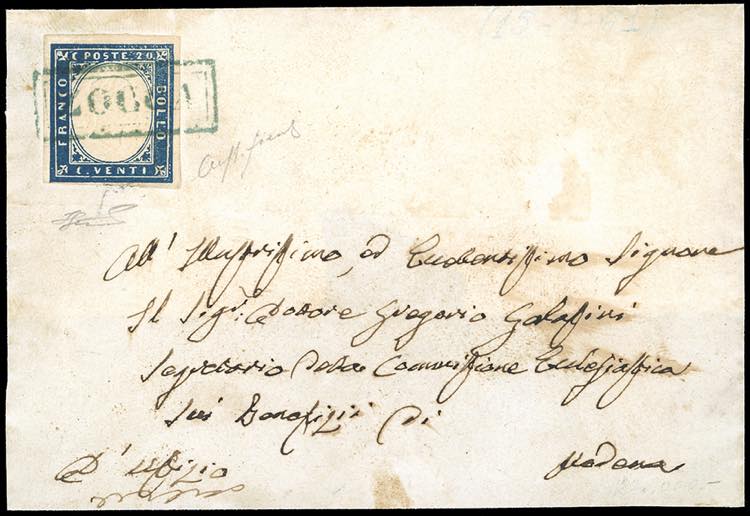 (15
C POSTE 20
FRANCO
BOLLO
C. VENTI
All' Illustrissimo, ed Eccellentissimo Signore
Il Sigr: Dottore Gregorio Galassini
Segretario della Commissione Ecclesiastica
Sui Benefizii di
D' Uffizio
Modena